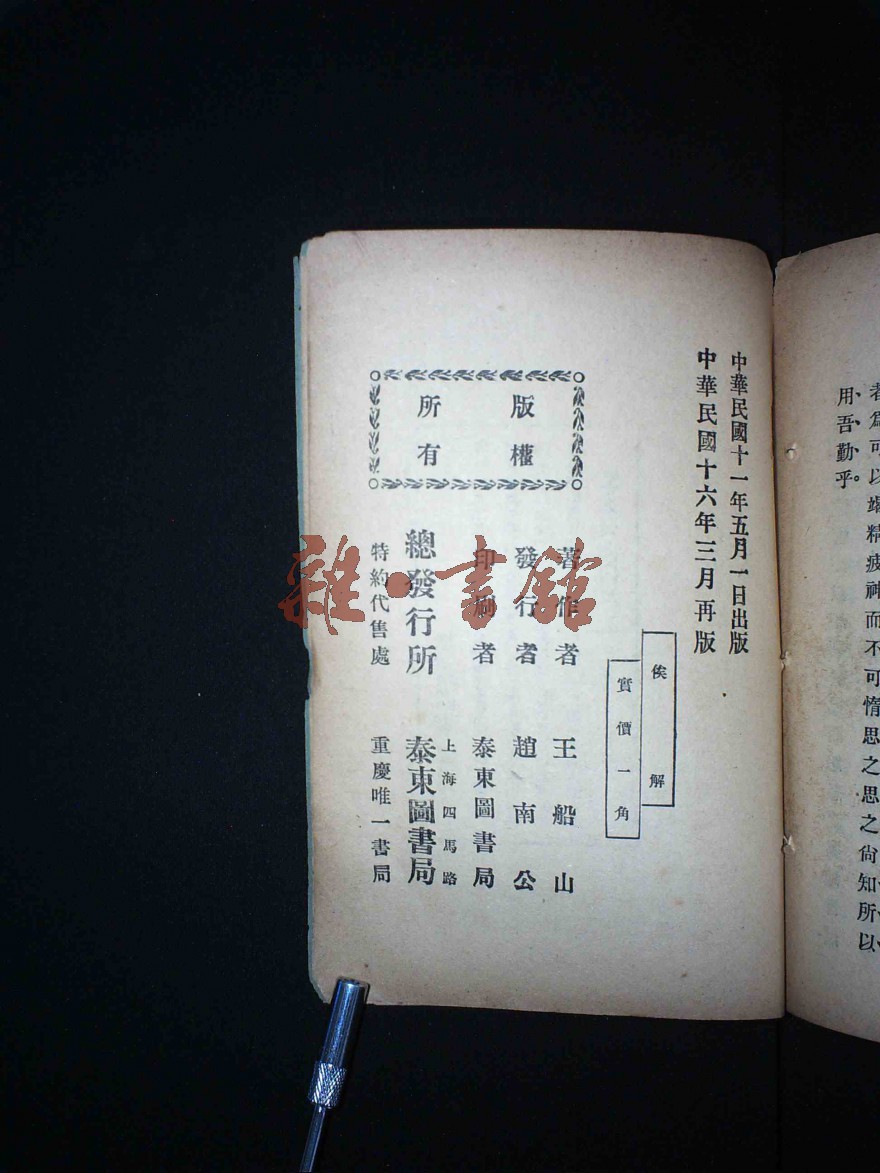 者爲可以竭精疲神而不可惰思之思之尙知所以
用吾勤乎。
中華民國十一年五月一日出版
中華民國十六年三月再版
俟解
實價一角
著作者 王船山
發行者 趙南公
印刷者 泰東圖書局
上海四馬路
總發行所 泰東圖書局
特約代售處 重慶唯一書局
版權
所有
雜·書館